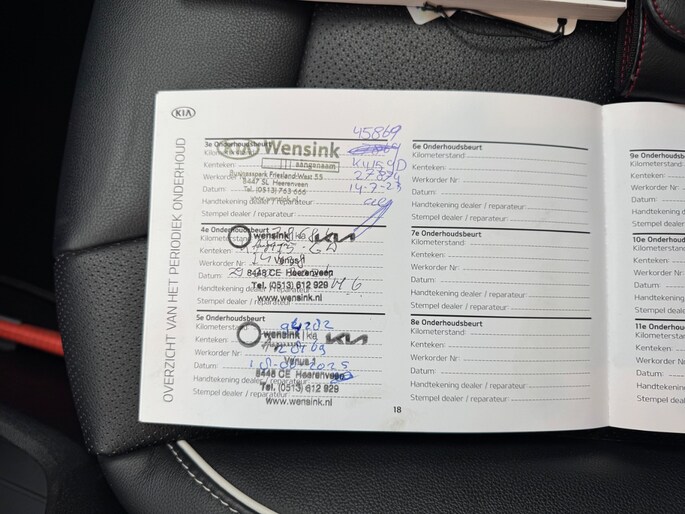 KIA
OVERZICHT VAN HET PERIODIEK ONDERHOUD
3e Onderhoudsbeurt
Kilometerstand
45869
Wensink
aangenaam
Kenteken:
Werkorder
27874
Businesspark Friesland-West 53
8447 SL Heerenveen
Datum
Tel. (0513) 763 666
14-7-23
www.wensink.nl
Handtekening dealer / reparateur:
Stempel dealer / reparateur:
4e Onderhoudsbeurt
Kilometerstand
wensink | kia
KIA
Kenteken:
Werkorder Nr
Venus 1
Datum:
8448 CE Heerenveen
Handtekening dealer / reparateur
Tel. (0513) 612 929
Stempel dealer / reparateur:
www.wensink.nl
5e Onderhoudsbeurt
Kilometerstand
wensink | kia
KIA
Kenteken:
Werkorder Nr:
Venus 1
Datum:
8448 CE Heerenveen
Handtekening dealer / reparateur
Tel. (0513) 612 929
Stempel dealer / reparateur:
www.wensink.nl
6e Onderhoudsbeurt
Kilometerstand
Kenteken:
Werkorder Nr:
Datum:
Handtekening dealer / reparateur:
Stempel dealer / reparateur:
7e Onderhoudsbeurt
Kilometerstand:
Kenteken:
Werkorder Nr:
Datum:
Handtekening dealer / reparateur:
Stempel dealer / reparateur:
8e Onderhoudsbeurt
Kilometerstand:
Kenteken:
Werkorder Nr:
Datum:
Handtekening dealer / reparateur:
Stempel dealer / reparateur:
18
9e Onderhoud
Kilometerstand
Kenteken:
Werkorder Nr:
Datum:
Handtekening
Stempel deal
10e Onderho
Kilometerstan
Kenteken:
Werkorder Nr
Datum:
Handtekening
Stempel dea
11e Onderho
Kilometersta
Kenteken:
Werkorder N
Datum:
Handtekeni
Stempel de